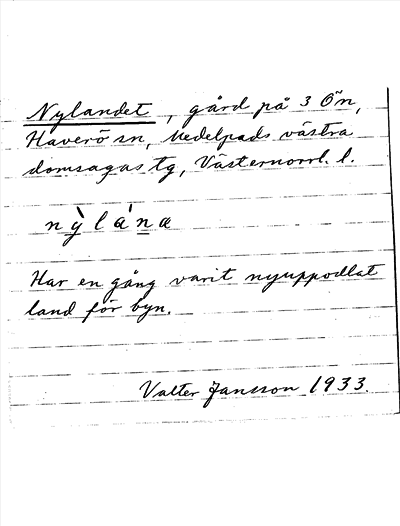 Nylandet, gård på 3 Ön,
Haverö sn, Medelpads västra
domsagas tg, Västernorrl. l.
nỳlána
Har en gång varit nyuppodlat
land för byn.
Valter Jansson 1933.